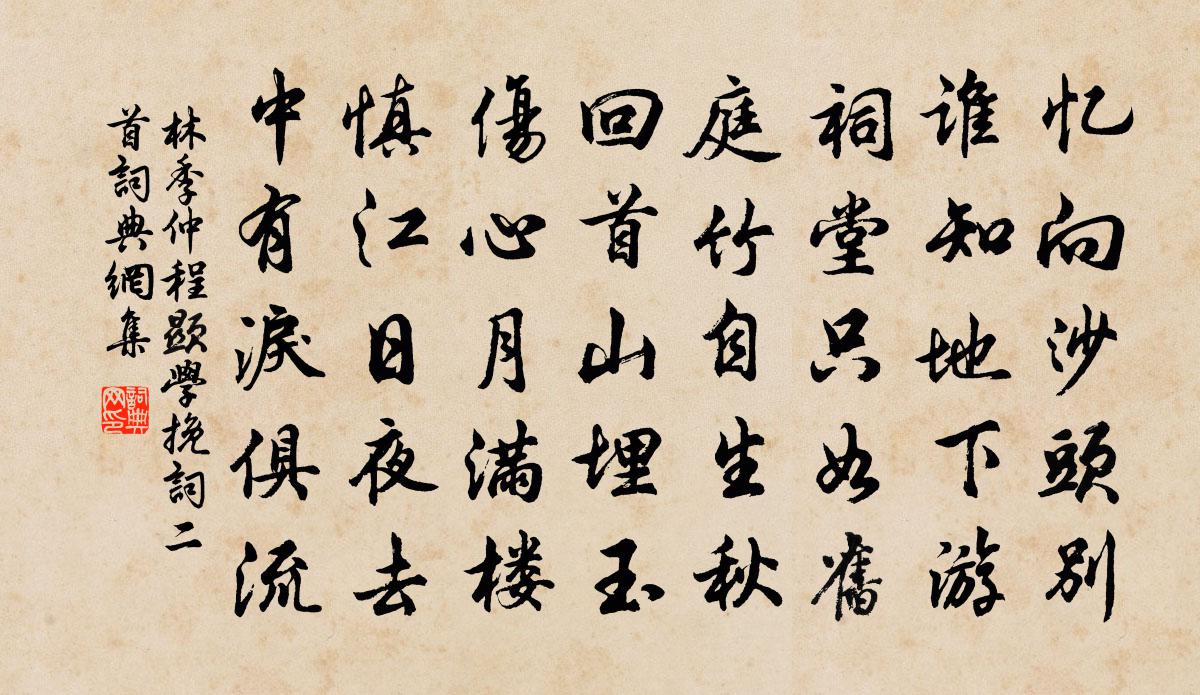 忆向沙頭别
谁知地下游
祠堂只如舊
庭竹自生秋
回首山埋玉
傷心月满楼
慎江日夜去
中有淚俱流
林季仲程顯學挽詞二
首詞典網集
詞典
网印